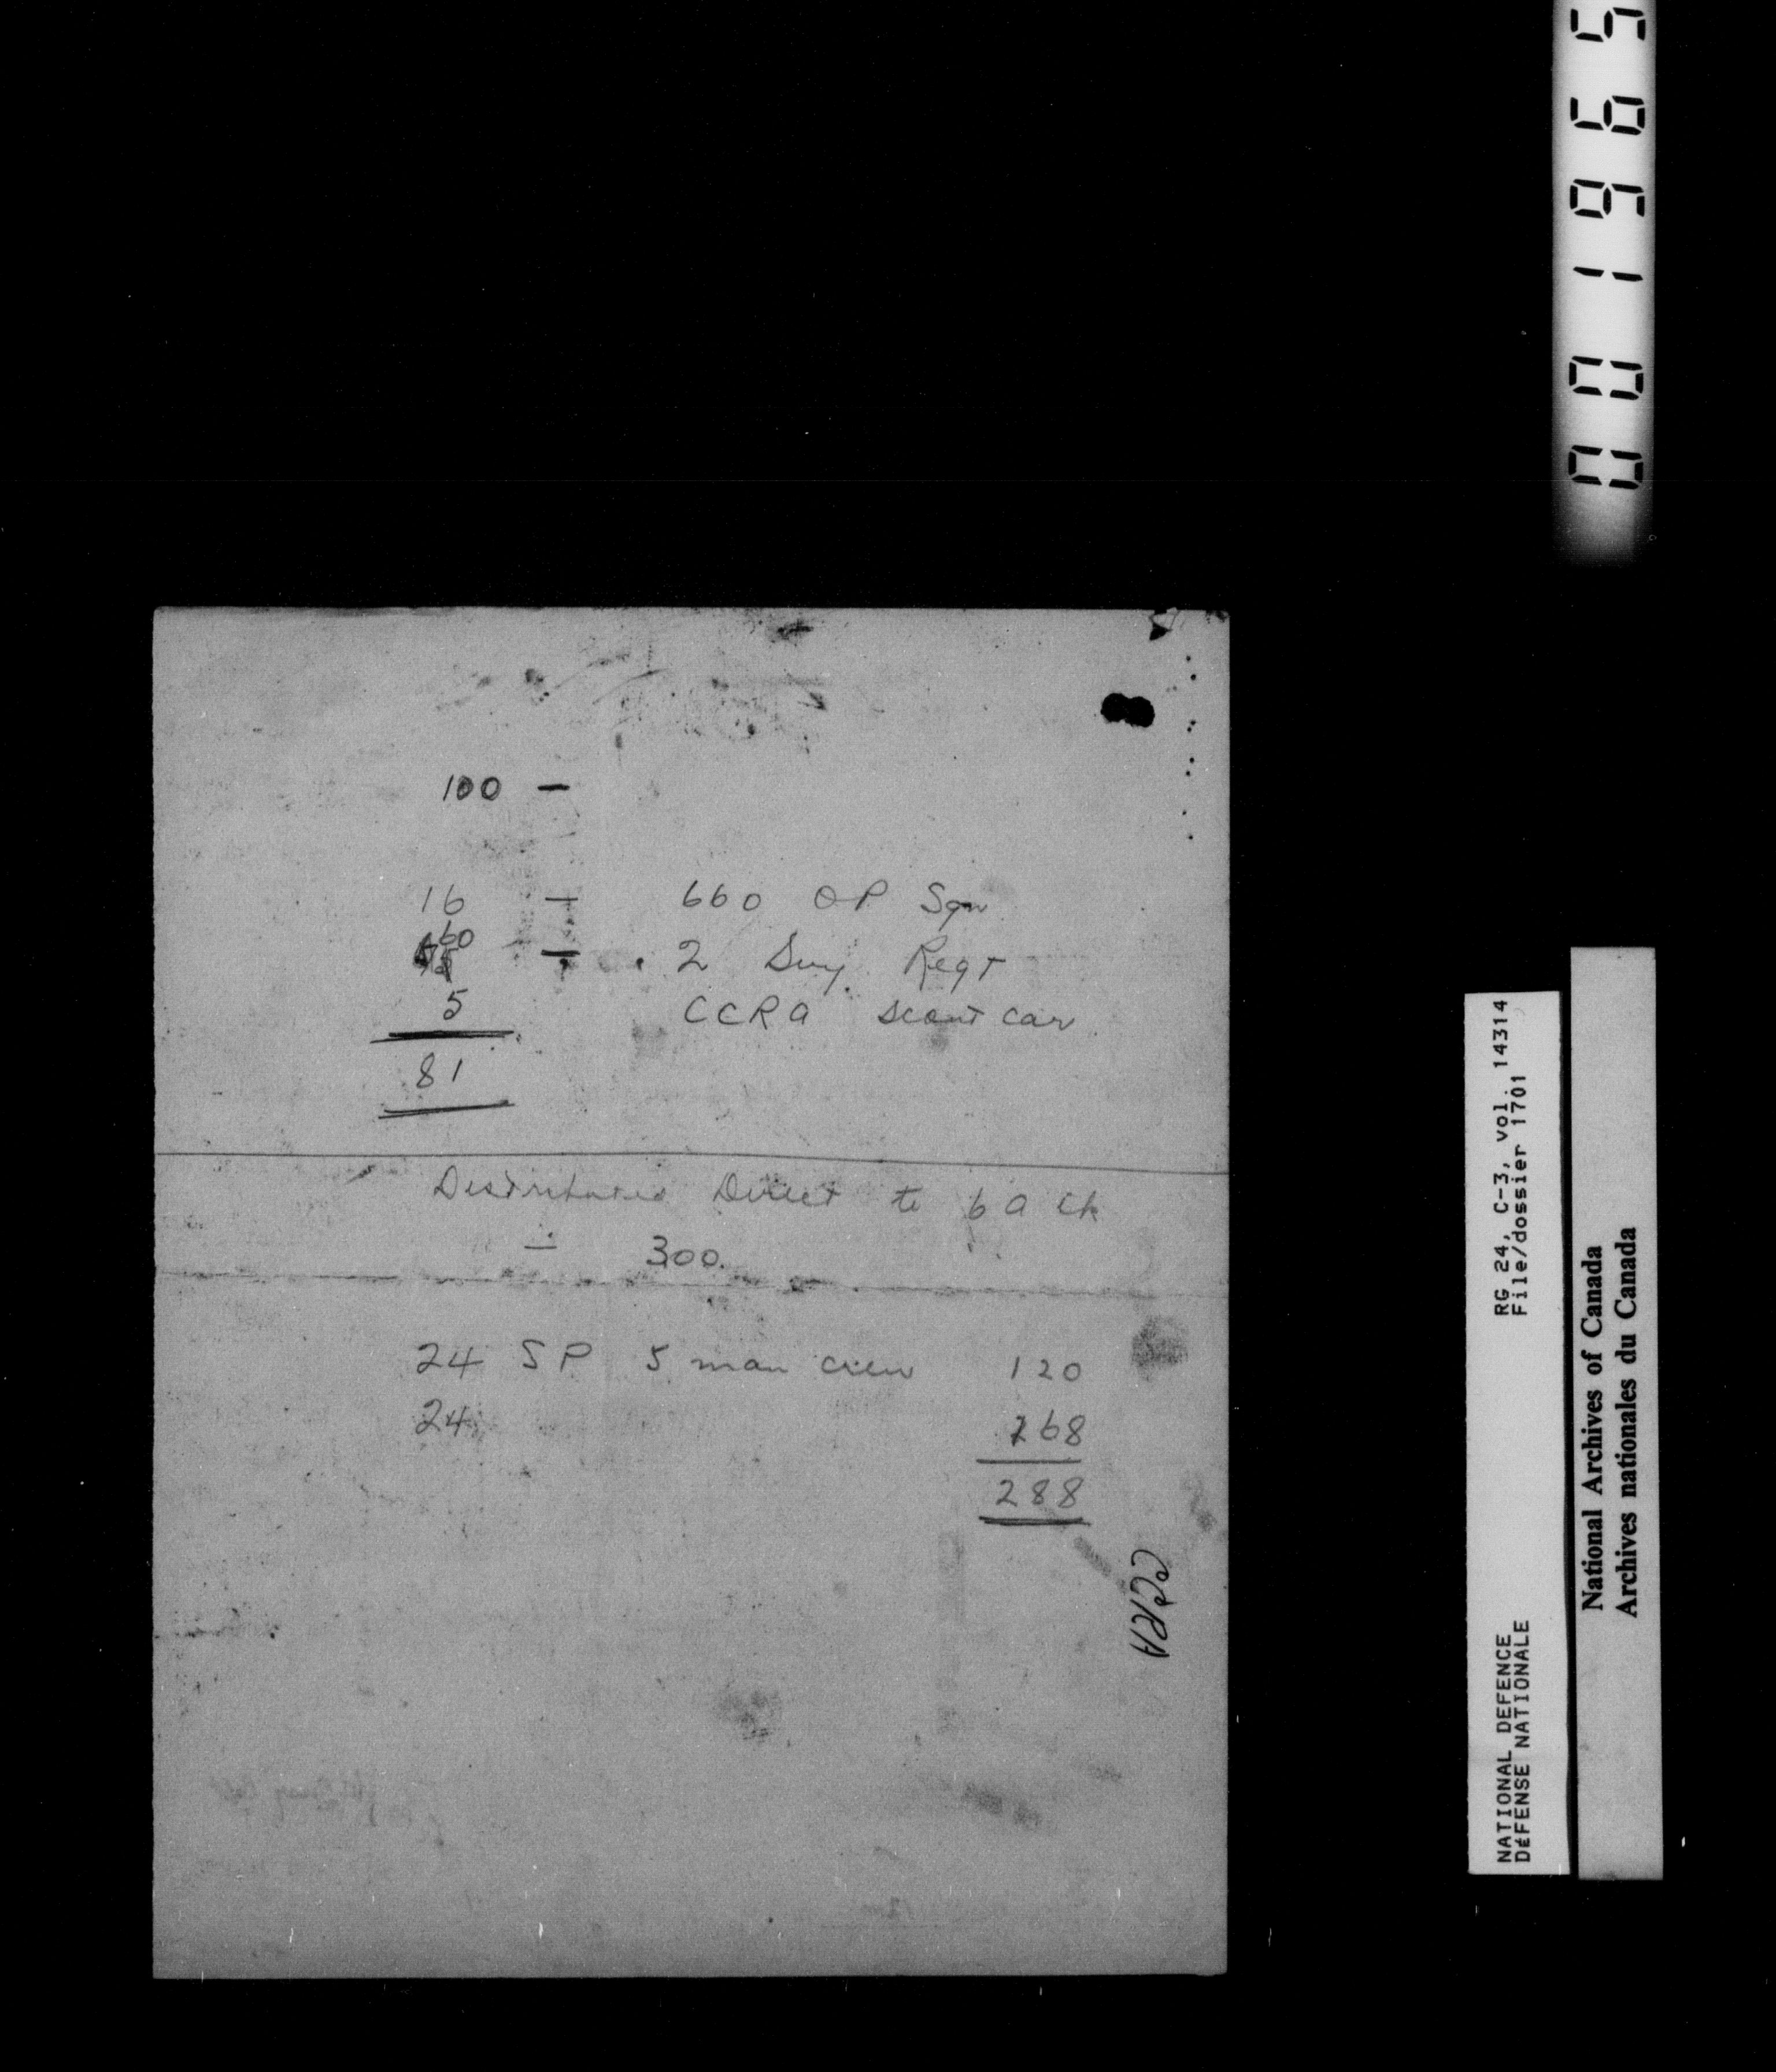 001965
100 —
16 — 660 OP Sqn
60 — 2 Svy. Regt
5 CCRA scout car
81
Distributed Direct to 6 A
— 300.
24 SP 5 man crew 120
24 168
288
CCRA
RG 24, C-3, vol. 14314
File/dossier 1701
NATIONAL DEFENCE
DéFENSE NATIONALE
National Archives of Canada
Archives nationales du Canada